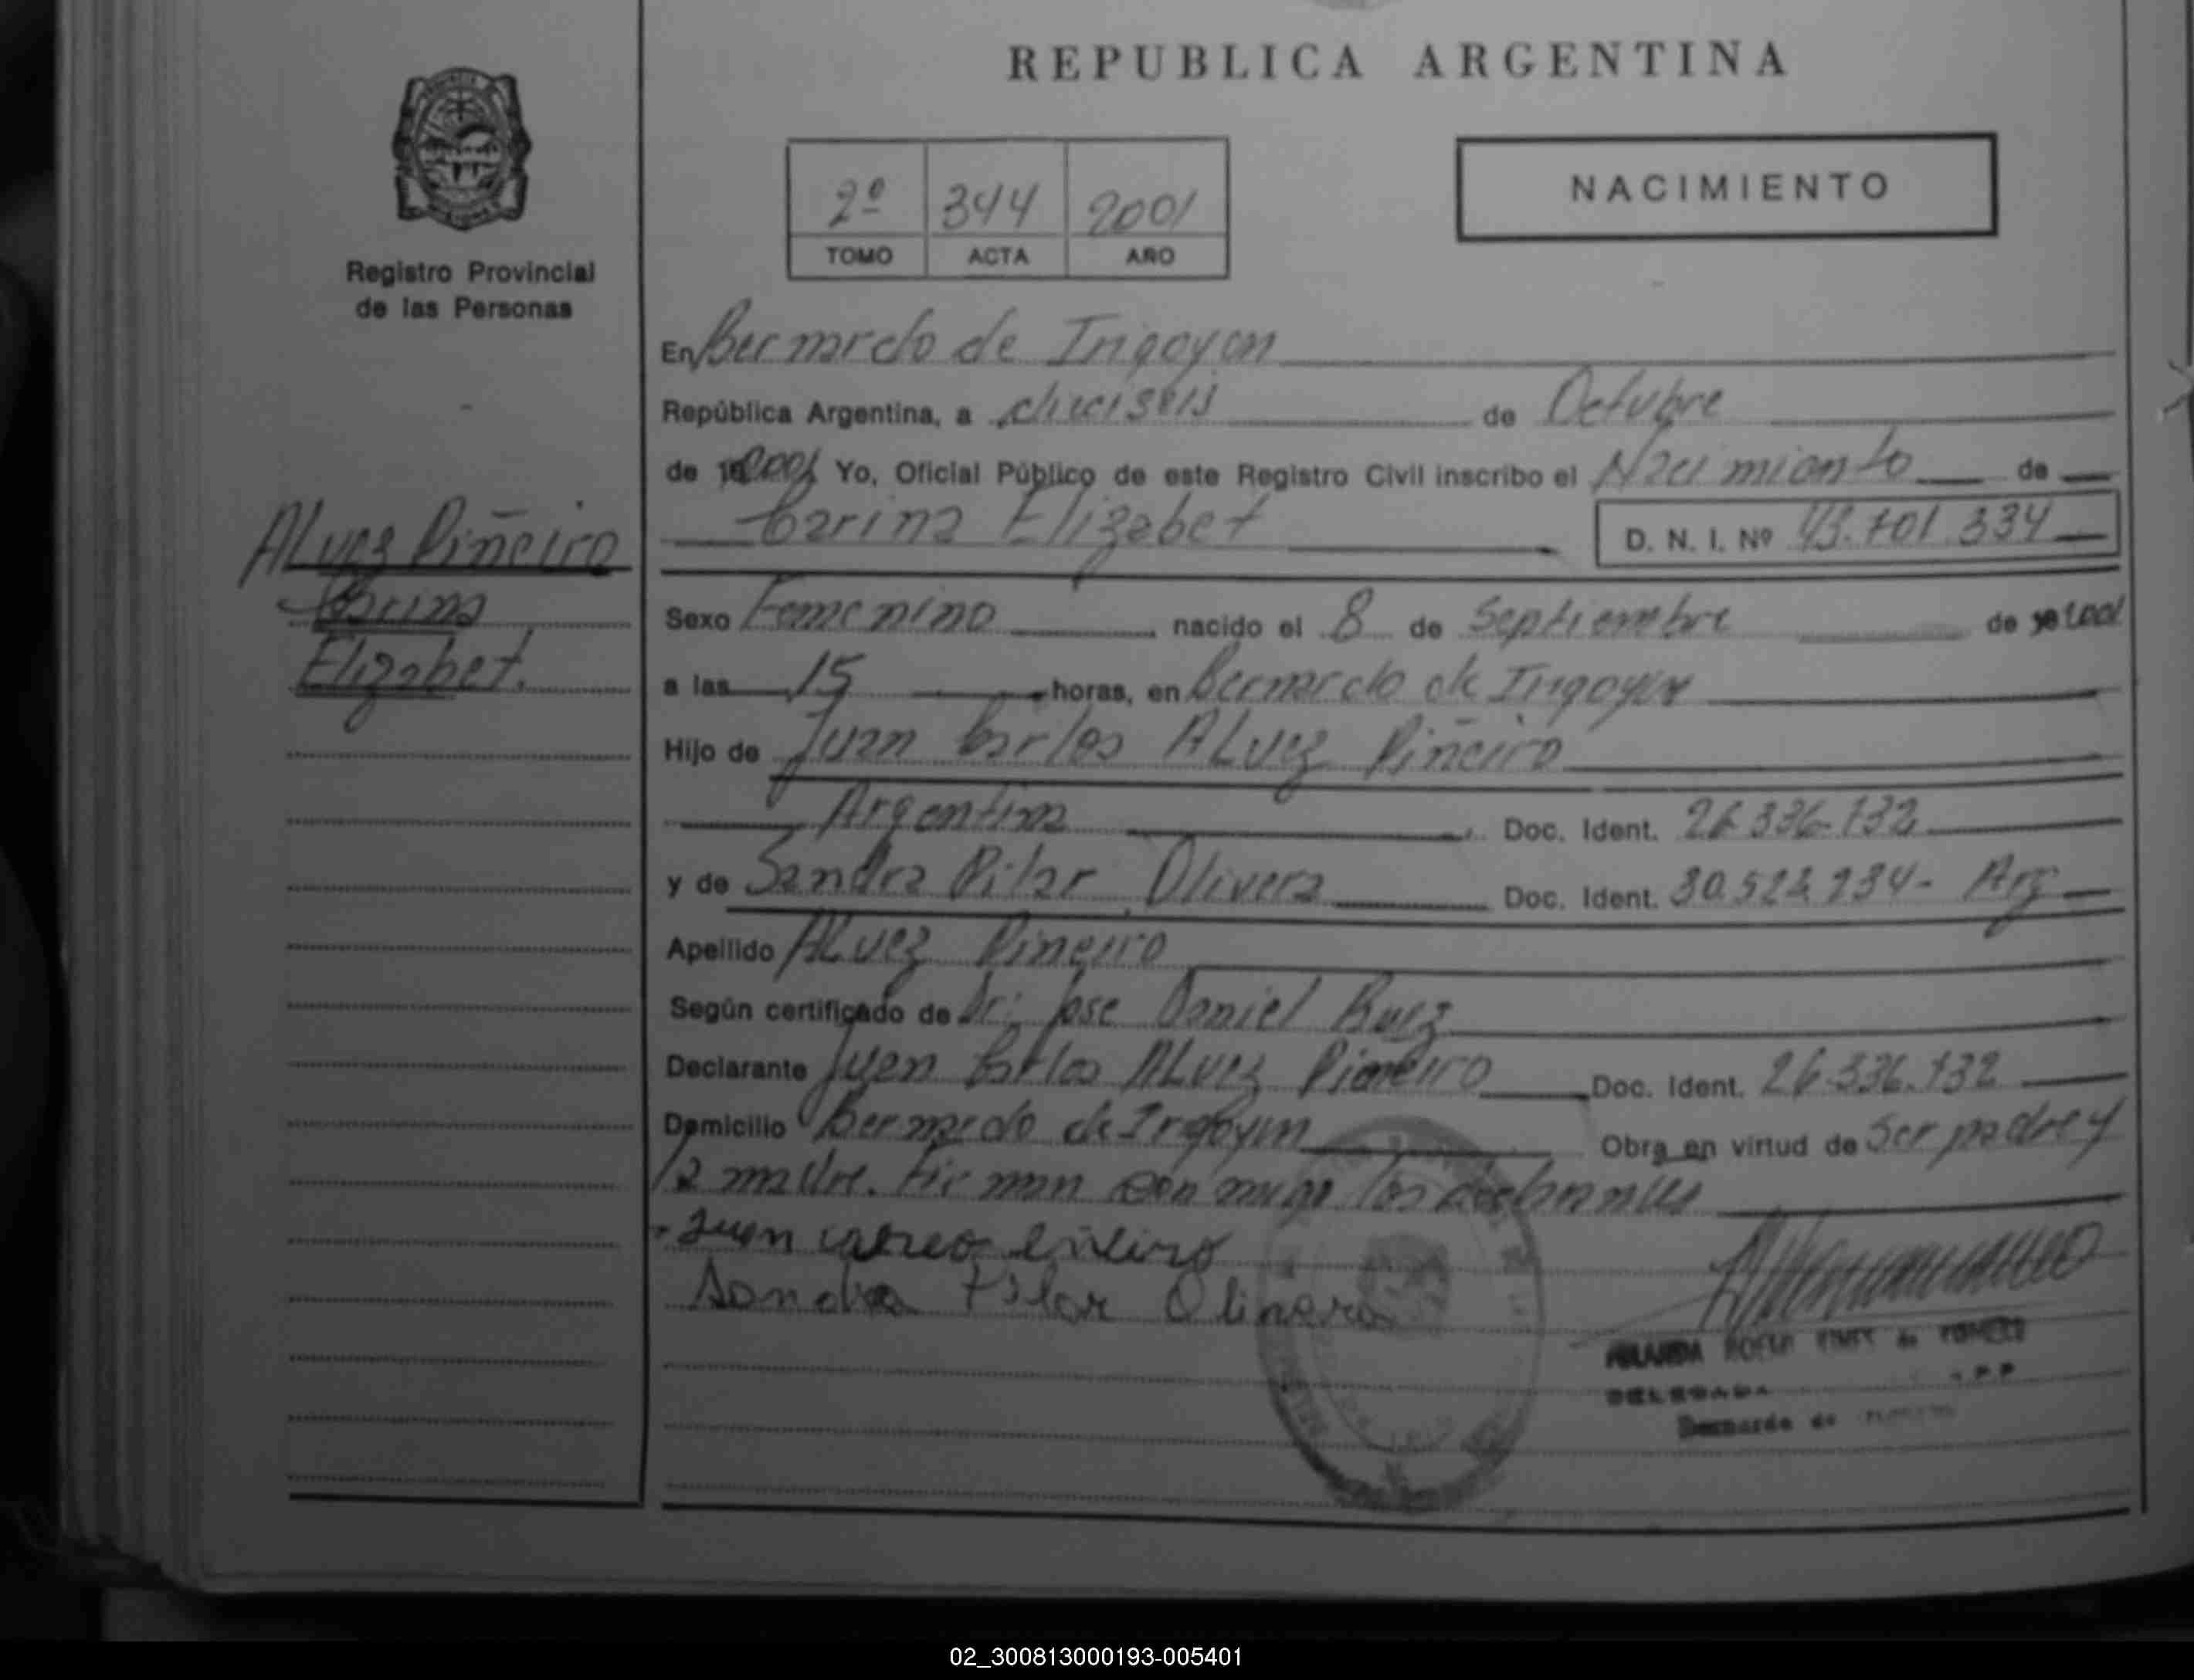 REPUBLICA ARGENTINA
NACIMIENTO
2º 344 2001
TOMO ACTA AÑO
Registro Provincial
de las Personas
Alvez Piñeiro
Carina
Elizabet.
En Bernardo de Irigoyen
República Argentina, a dieciseis de Octubre
de 2001 Yo, Oficial Público de este Registro Civil inscribo el Nacimiento de
Carina Elizabet D. N. I. Nº 43.701.334
Sexo Femenino nacido el 8 de Septiembre de 2001
a las 15 horas, en Bernardo de Irigoyen
Hijo de Juan Carlos Alvez Piñeiro
Argentina Doc. Ident. 26.336.132
y de Sandra Pilar Olivera Doc. Ident. Arg
Apellido Alvez Piñeiro
Según certificado de Dr: Jose Daniel Ruiz
Declarante Juan Carlos Alvez Piñeiro Doc. Ident. 26.336.132
Domicilio Bernardo de Irigoyen Obra en virtud de Ser padre y
la madre. Firman con migo los declarantes
Juan
Sandra Pilar Olivera
DELEGADA
Bernardo de
02_300813000193-005401